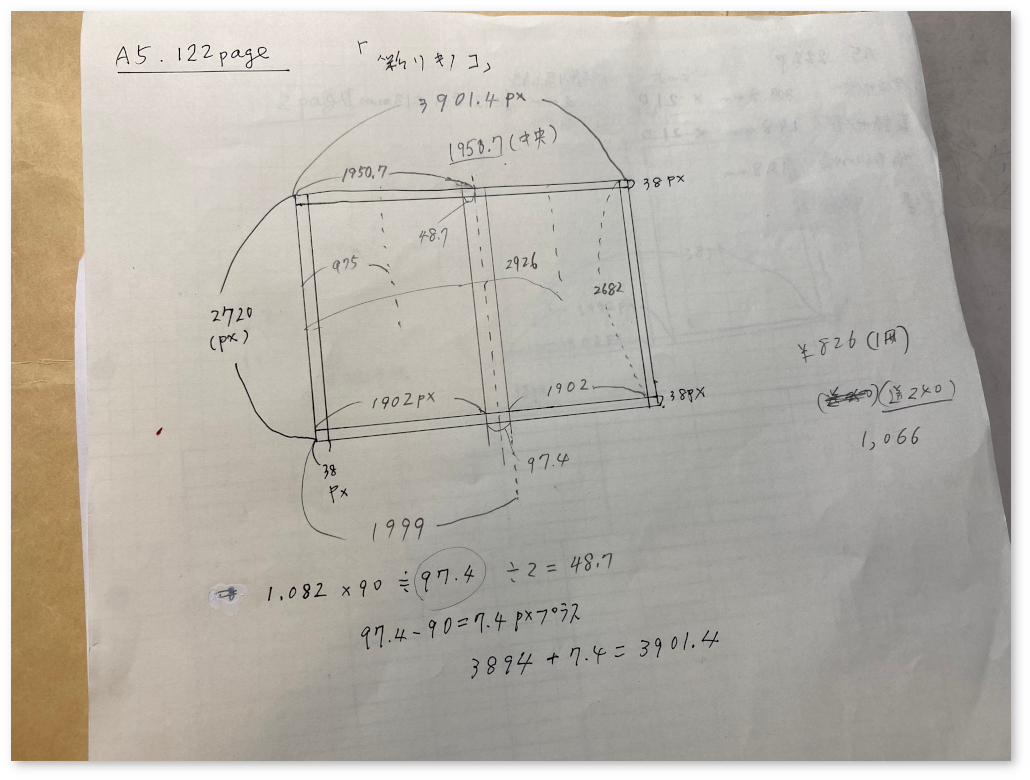 A5.122page
3901.4px
1950.7(中央)
1950.7
38px
48.7
975
2926
2682
2720
(px)
1902px
1902
38px
97.4
38
px
1999
¥826(1冊)
(送240)
1,066
1.082×90≒97.4 ÷2=48.7
97.4-90=7.4pxプラス
3894+7.4=3901.4